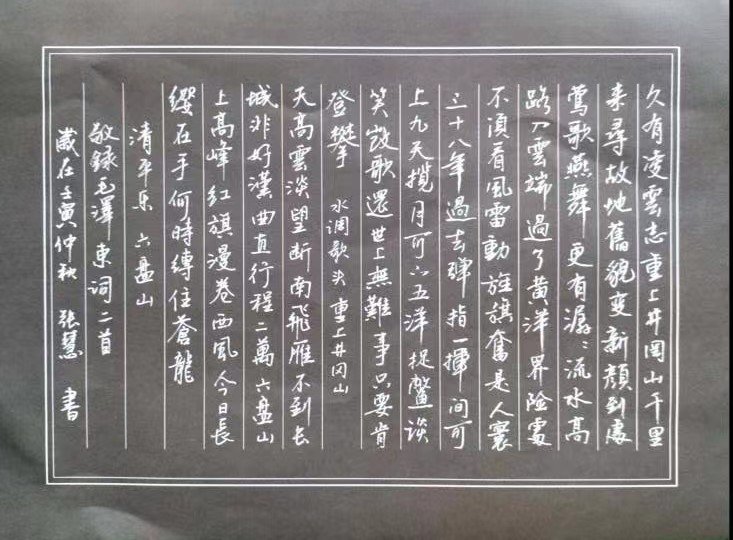 久有凌雲志重上井岡山千里
来尋故地舊貌變新顏到處
鶯歌燕舞更有潺:流水高
路入雲端過了黄洋界險處
不須看風雷動旌旗奮是人寰
三十八年過去彈指一揮間可
上九天攬月可下五洋捉鱉談
笑凱歌還世上無難事只要肯
登攀 水调歌头 重上井冈山
天高雲淡望断南飛雁不到長
城非好漢曲直行程二萬六盘山
上高峰红旗漫卷西風今日長
缨在手何時縛住蒼龍
清平乐 六盘山
敬録毛澤東词二首
歲在壬寅仲秋 張慧 書